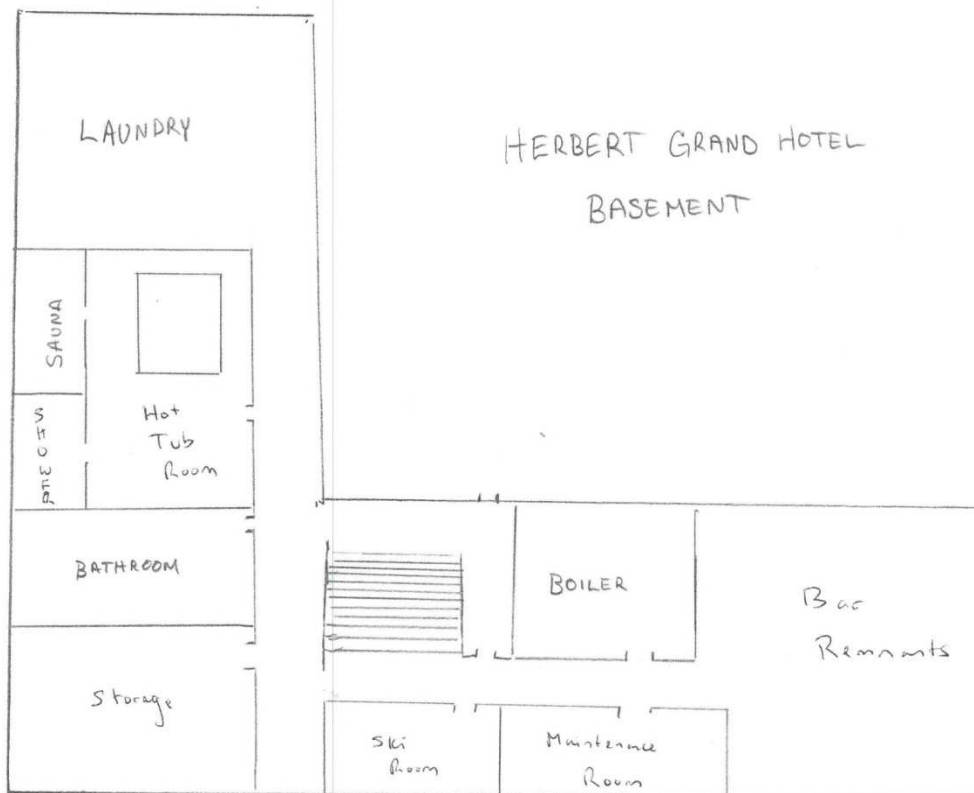 LAUNDRY
HERBERT GRAND HOTEL
BASEMENT
SAUNA
SHOWER
Hot
Tub
Room
BATHROOM
BOILER
Bar
Remnants
Storage
Ski
Room
Maintenance
Room